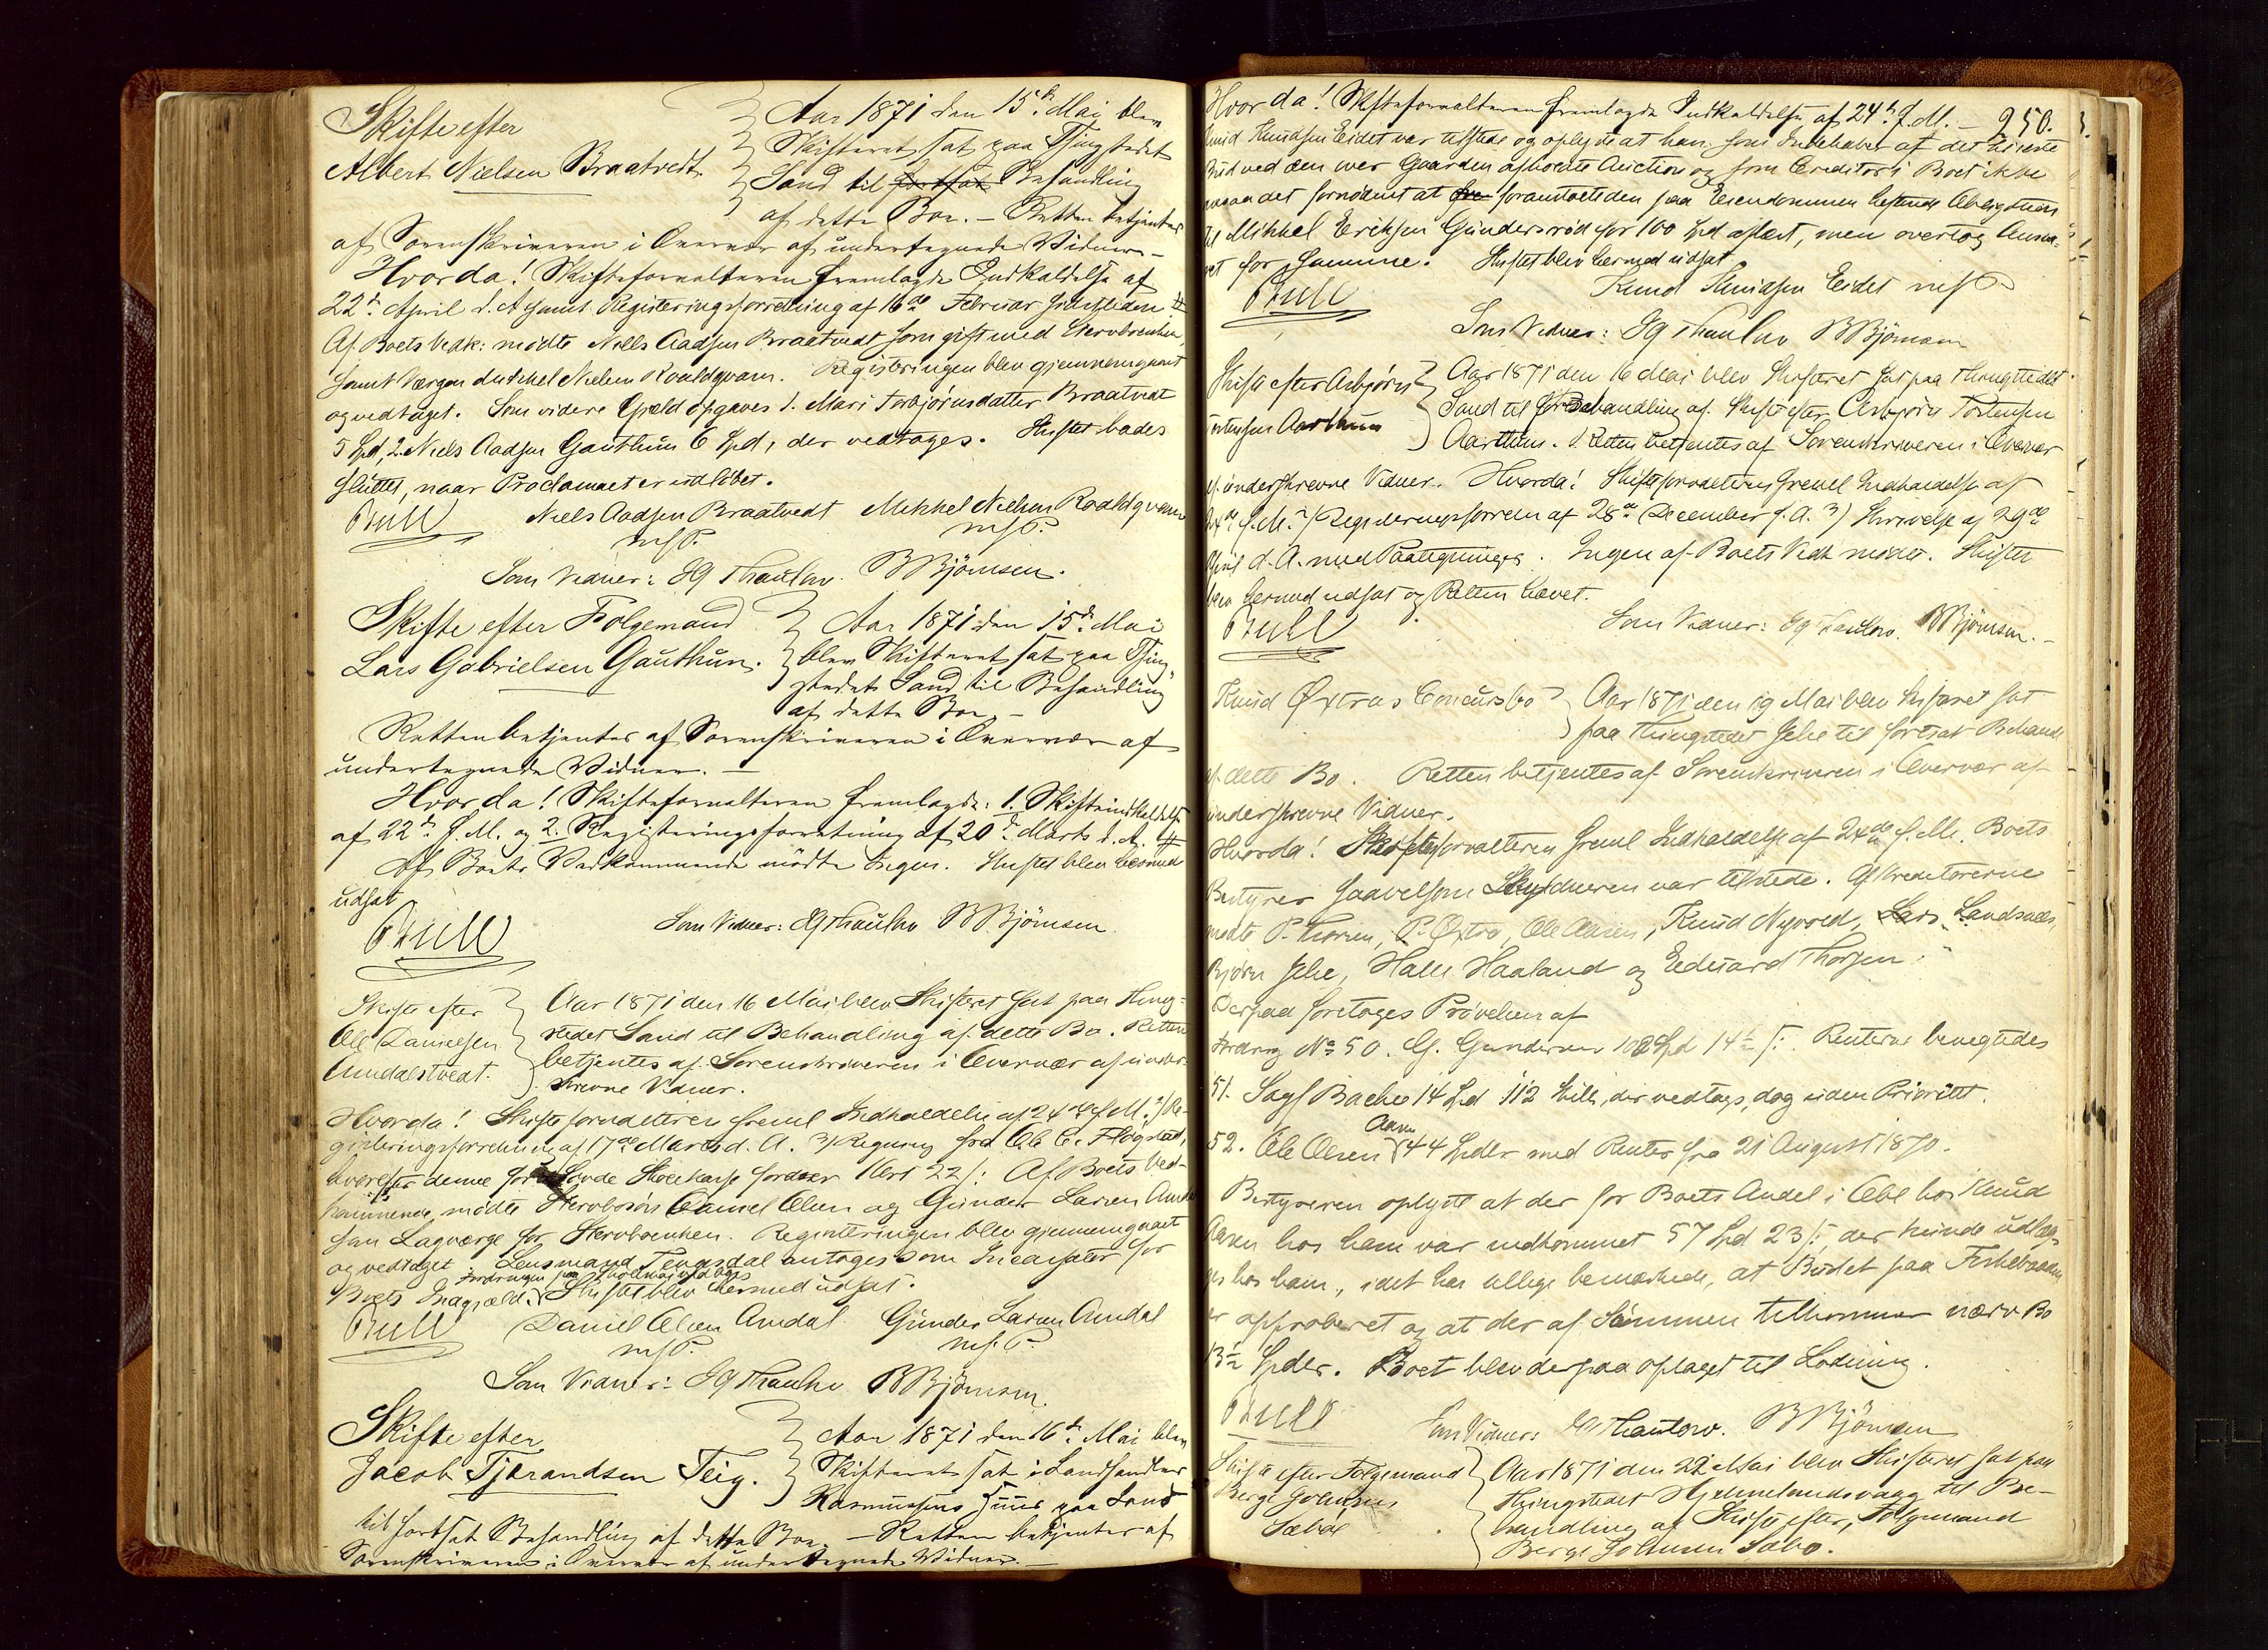 Skifte efter
Albert Nielsen Braatvedt.
Aar 1871 den 15de Mai blev
Skifteret sat paa Thingstedet
Sand til fortsat Behandling
af dette Boe. – Retten betjentes
af Sorenskriveren i Overvær af undertegnede Vidner. –
Hvorda! Skifteforvalteren fremlagde Indkaldelse af
22de April d. A. samt Registeringsforretning af 16de Februar
Af Boets Vedk: mødte Niels Aadsen Braatvedt som gift med
samt Værgen Mikkel Nielsen Roaldqvam. Registeringen blev gjennemgaaet
og vedtaget. Som videre Gjæld opgaves 1. Mari Torbjørnsdatter Braatvedt
5 Spd, 2. Niels Aadsen Gauthun 6 Spd, der vedtoges. Skiftet bades
sluttet, naar Proclamaet er udløbet.
Bull Niels Aadsen Braatvedt Mikkel Nielsen Roaldqvam
m.f.P. m.f.P.
Som Vidner: Thaulow. B Bjørnsen.
Skifte efter Folgemand
Lars Gabrielsen Gauthun.
Aar 1871 den 15de Mai
blev Skifteret sat paa Thing-
stedet Sand til Behandling
af dette Boe –
Retten betjentes af Sorenskriveren i Overvær af
undertegnede Vidner. –
Hvorda! Skifteforvalteren fremlagde: 1. Skifteindkaldelse
af 22de f. M. og 2. Registeringsforretning af 20de Marts d. A.
Af Boets Vedkommende mødte Ingen. Skiftet blev hermed
udsat
Bull Som Vidner: Thaulow B Bjørnsen.
Skifte efter
Ole Danielsen
Amdalstvedt.
Aar 1871 den 16 Mai blev Skifteret sat paa Thing-
stedet Sand til Behandling af dette Bo. Retten
betjentes af Sorenskriveren i Overvær af under-
skrevne Vidner.
Hvorda! Skifteforvalteren freml Indkaldelse af 24de f M. 2) Re-
gisteringsforretning af 17de Marts d. A. 3) Regning fra Ole C. Fløgstad,
hvorefter denne for Sovde Skolekasse fordrer 22 /: Af Boets Ved-
kommende mødte Stervbosøn Daniel Olsen og Gunder Larsen Amdal
som Lagværge for Stervboenken. Registeringen blev gjennemgaaet
og vedtaget. Lensmand Tengsdal antoges som Incassator for
Fordringen paa
Boets Indgjæld. Skiftet blev hermed udsat.
Bull Daniel Olsen Amdal. Gunder Larsen Amdal
m.f.P. m.f.P.
Som Vidner: Thaulow B Bjørnsen.
Skifte efter
Jacob Tjerandsen Teig.
Aar 1871 den 16de Mai blev
Skifteret sat i Landhandler
Rasmussens Huus paa Sand
til fortsat Behandling af dette Boe. – Retten betjentes af
Sorenskriveren i Overvær af undertegnede Vidner. –
Hvorda! Skifteforvalteren fremlagde Indkaldelse af 24de f. M. – 250.
Knud Knudsen Eidet var tilstede og oplyste at han som Indehaver af det høieste
Bud ved den over Gaarden afholdte Auction og som Creditor i Boet ikke
det fornødent at foranstalte den paa Eiendommen heftende Obligation
til Mikkel Eriksen Gundersrød for 100 Spd aflæst, men overtog Ansva-
ret for samme. Skiftet blev hermed udsat
Bull Knud Knudsen Eidet m.f.P.
Som Vidner: Thaulow B Bjørnsen
Skifte efter Asbjørn
Torstensen Aarthun
Aar 1871 den 16 Mai blev Skifteret sat paa Thingstedet
Sand til Behandling af Skifte efter Asbjørn Torstensen
Aarthun. Retten betjentes af Sorenskriveren i Overvær
af underskrevne Vidner. Hvorda! Skifteforvalteren freml Indkaldelse af
24de f. M. 2) Registeringsforretn af 28de December f. A. 3) Skrivelse af 29de
April d. A. med Paategninger. Ingen af Boets Vedk mødte. Skiftet
blev hermed udsat og Retten hævet.
Bull Som Vidner: Thaulow. B Bjørnsen. –
Knud Øxtras Concursbo
Aar 1871 den 19 Mai blev Skifteret sat
paa Thingstedet Jelse til fortsat Behandl
af dette Bo. Retten betjentes af Sorenskriveren i Overvær af
underskrevne Vidner.
Hvorda! Skifteforvalteren freml Indkaldelse af 24de f. M. Boets
Bestyrer saavelsom Skyldneren var tilstede. Af Kreditorerne
mødte P. Thorsen, P. Øxtra, Ole Aasen, Knud Nyvold, Lars Landsnæs,
Bjørn Jelse, Halle Haaland og Eduard Thorsen.
Derpaa foretoges Prøvelsen af
Fordring No 50. G. Gundersen 102 Spd 14 /: Renterne benegtedes
51. Sagf Bache 14 Spd 112 Skill, der vedtoges, dog uden Prioritet.
Aasen
52. Ole Olsen 44 Spdlr med Renter fra 21 August 1870.
Bestyreren oplyste at der for Boets Andel i hos Knud
Aasen hos ham var indkommet 57 Spd 23 /: der kunde udlæg-
ges hos ham, idet han tillige bemærkede, at Budet paa
er approberet og at der af Summen tilkommer nærv Bo
13½ Spdlr. Boet blev derpaa optaget til Lodning.
Bull Som Vidner: Thaulow. B Bjørnsen
Skifte efter Folgemand
Berge Johnsen
Sæbø
Aar 1871 den 22 Mai blev Skifteret sat paa
Thingstedet Hjelmelandsvaag til Be-
handling af Skifte efter, Folgemand
Berge Johnsen Sæbø.